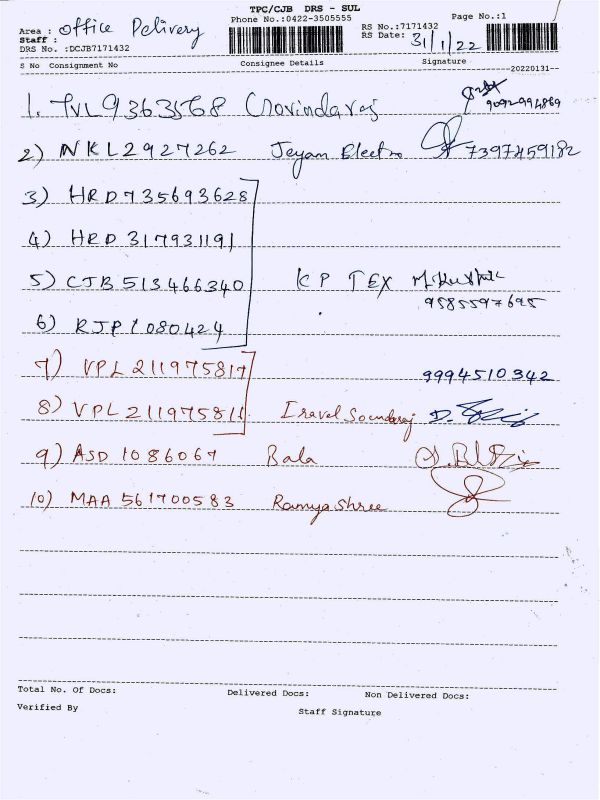 TPC/CJB DRS - SUL
Area : Office Delivery Phone No.:0422-3505555 RS No.:7171432 Page No.:1
Staff : RS Date: 31/1/22
DRS No. :DCJB7171432
S No Consignment No Consignee Details Signature
--20220131--
1. TVL9363568 Govindaraj 9092994869
2) NKL2927262 Jeyam Electro 7397459182
3) HRD735693628
4) HRD317931191
5) CJB513466340 KP TEX
9585597695
6) RJP1080424
7) VPL211975817 9994510342
8) VPL211975811 Iravel Soundaraj
9) ASD1086067 Bala
10) MAA561700583 Ramya Shree
Total No. Of Docs: Delivered Docs: Non Delivered Docs:
Verified By Staff Signature